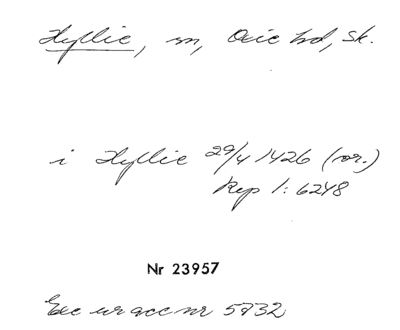 Hyllie, sn, Oxie hd, Sk.
i Hyllie 29/4 1426 (or.)
Rep 1: 6248
Nr 23957
Exc ur acc nr 5732